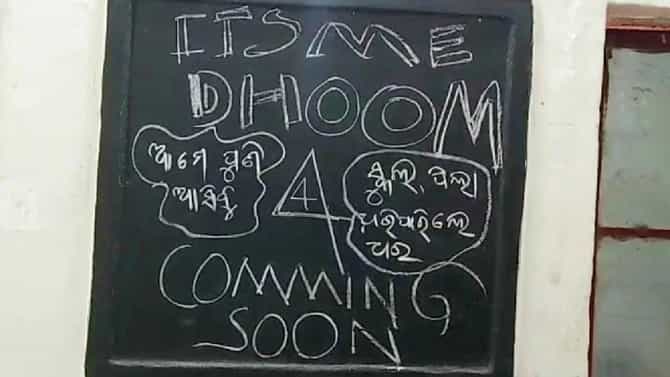 ITS ME
DHOOM
ଆମେ ପୁଣି
ଆସିବୁ
4
ସ୍କୁଲ, ପିଲା
ଘର
COMMING
SOON